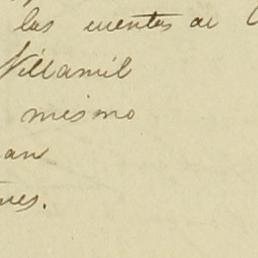 las cuentas de
Villamil
mismo
an
nes.